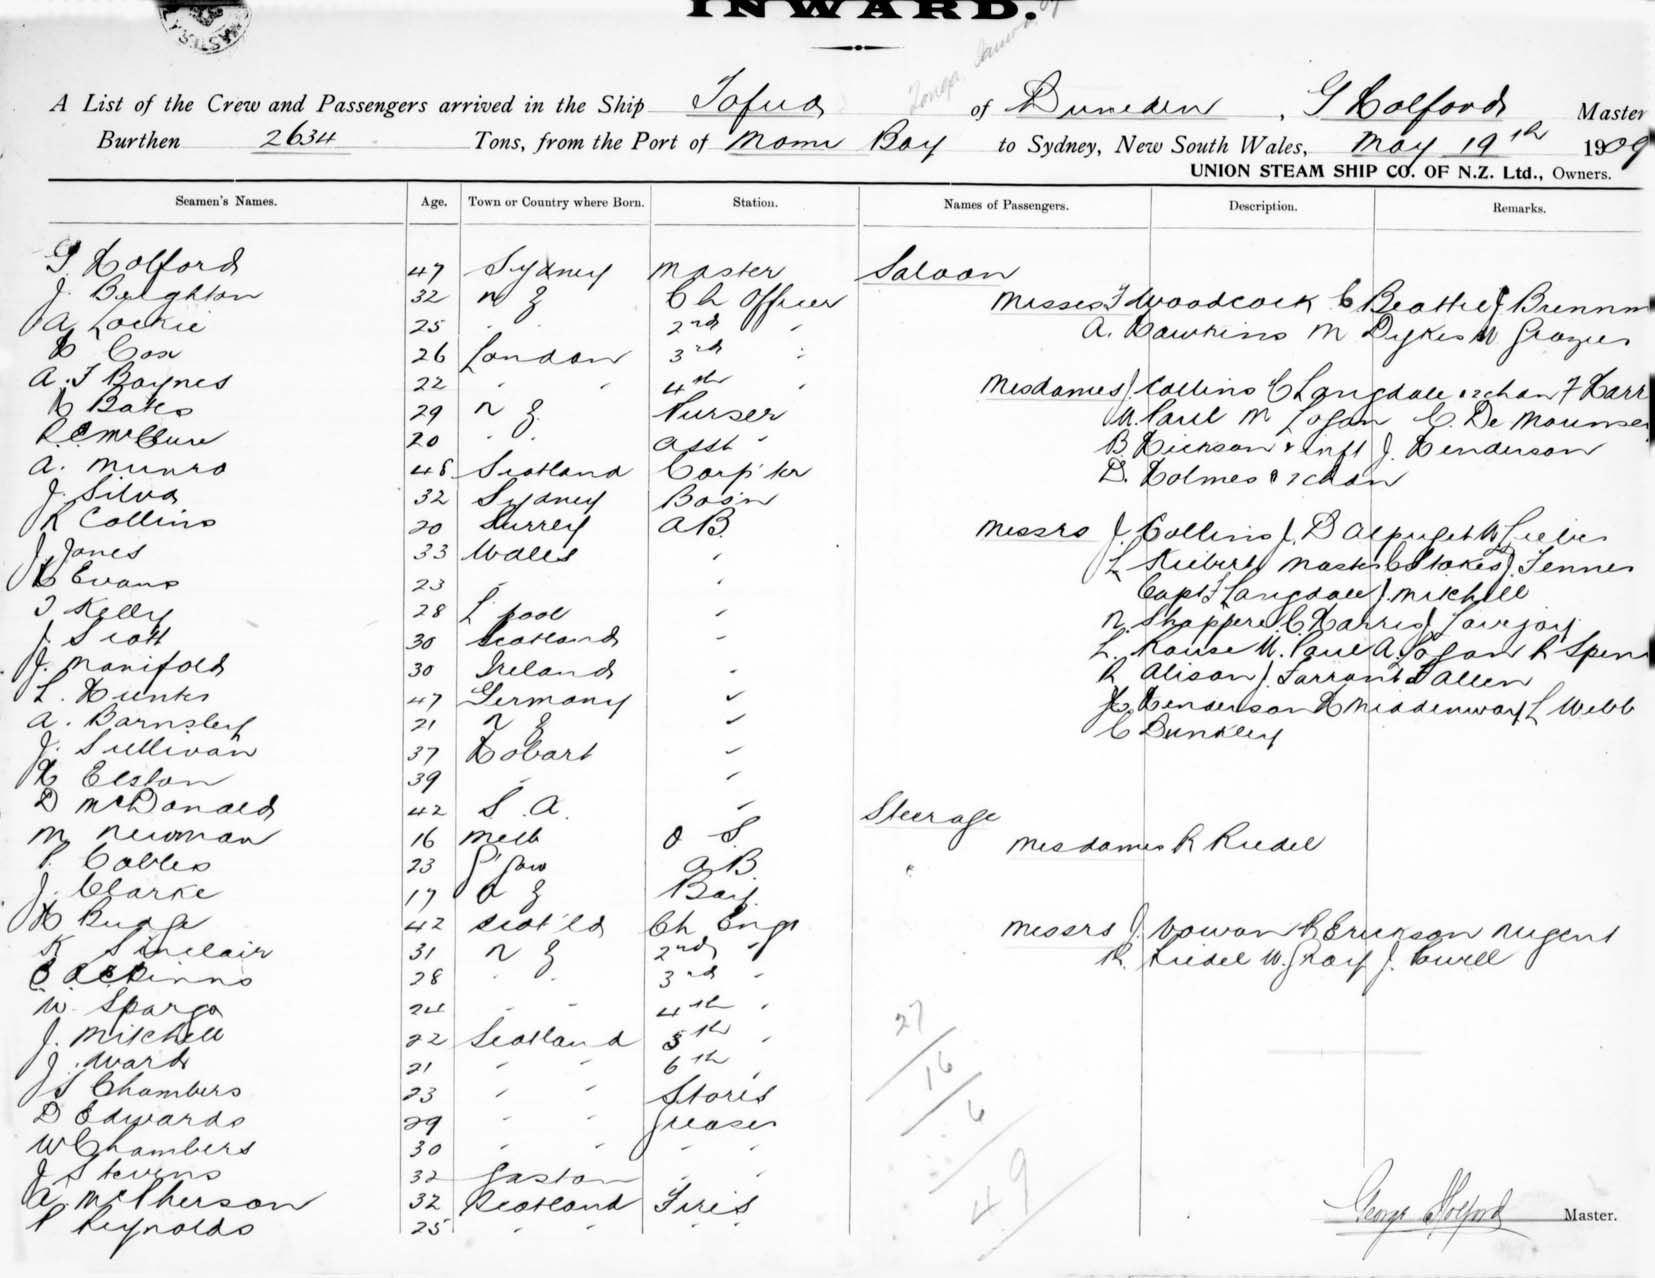 INWARD.
A List of the Crew and Passengers arrived in the Ship Tofua of Dunedin, G Holford Master
Burthen 2634 Tons, from the Port of Bay to Sydney, New South Wales, May 19th 1909
UNION STEAM SHIP CO. OF N.Z. Ltd., Owners.
Seamen's Names. Age. Town or Country where Born. Station. Names of Passengers. Description. Remarks.
G. Holford 47 Sydney Master Saloon
J. Beighton 32 N Z Ch Officer Misses F Woodcock C Beattie J
A Lockie 25 " " 2nd " A. Hawkins M Dykes
H Cox 26 London 3rd "
A. F Baynes 22 " " 4th " Mesdames J. Collins C Langdale & 2 chdn F
H Bates 29 N Z Purser M. Paul M Logan C. De
R. C. McClure 20 " " Asst " B. Hickson & inft J. Henderson
A. Munro 48 Scotland Carp'ter D. Holmes & 2 chdn
J. Silva 32 Sydney Bosn
R Collins 20 Surrey A.B. Messrs J. Collins J. D Alpuget
J. Jones 33 Wales " L C Stokes J.
H Evans 23 " " Capt F Langdale J. Mitchell
T Kelly 28 L'pool " N. C. Harris J Lovejoy
J. Scott 30 Scotland " L. Rouse M. Paul A. Logan R
J. Manifold 30 Ireland " R Alison J. Tarrant Allen
L. Hunks 47 Germany " H. Henderson H L Webb
A. Barnsley 21 N Z " C Dunkley
J. Sullivan 37 Hobart "
H Elston 39 " "
D McDonald 42 S. A. " Steerage
M Newman 16 Melb O S. Mesdames R Riedel
P. Cobles 23 G'gow A B.
J. Clarke 17 N Z Boy
H Budge 42 Scot'ld Ch Engr Messrs J. R Erickson Nugent
K Sinclair 31 N Z 2nd " R. Riedel W. Gray J.
28 " " 3rd "
W. Spargo 24 " " 4th "
J. Mitchell 22 Scotland 5th "
J. Ward 21 " " 6th "
S Chambers 23 " " Stores
D Edwards 29 " " Greaser
W Chambers 30 " " " "
J Stevens 32 " "
A. McPherson 32 Scotland Fires
P Reynolds 25 " " " "
27
16
6
49
George Holford Master.